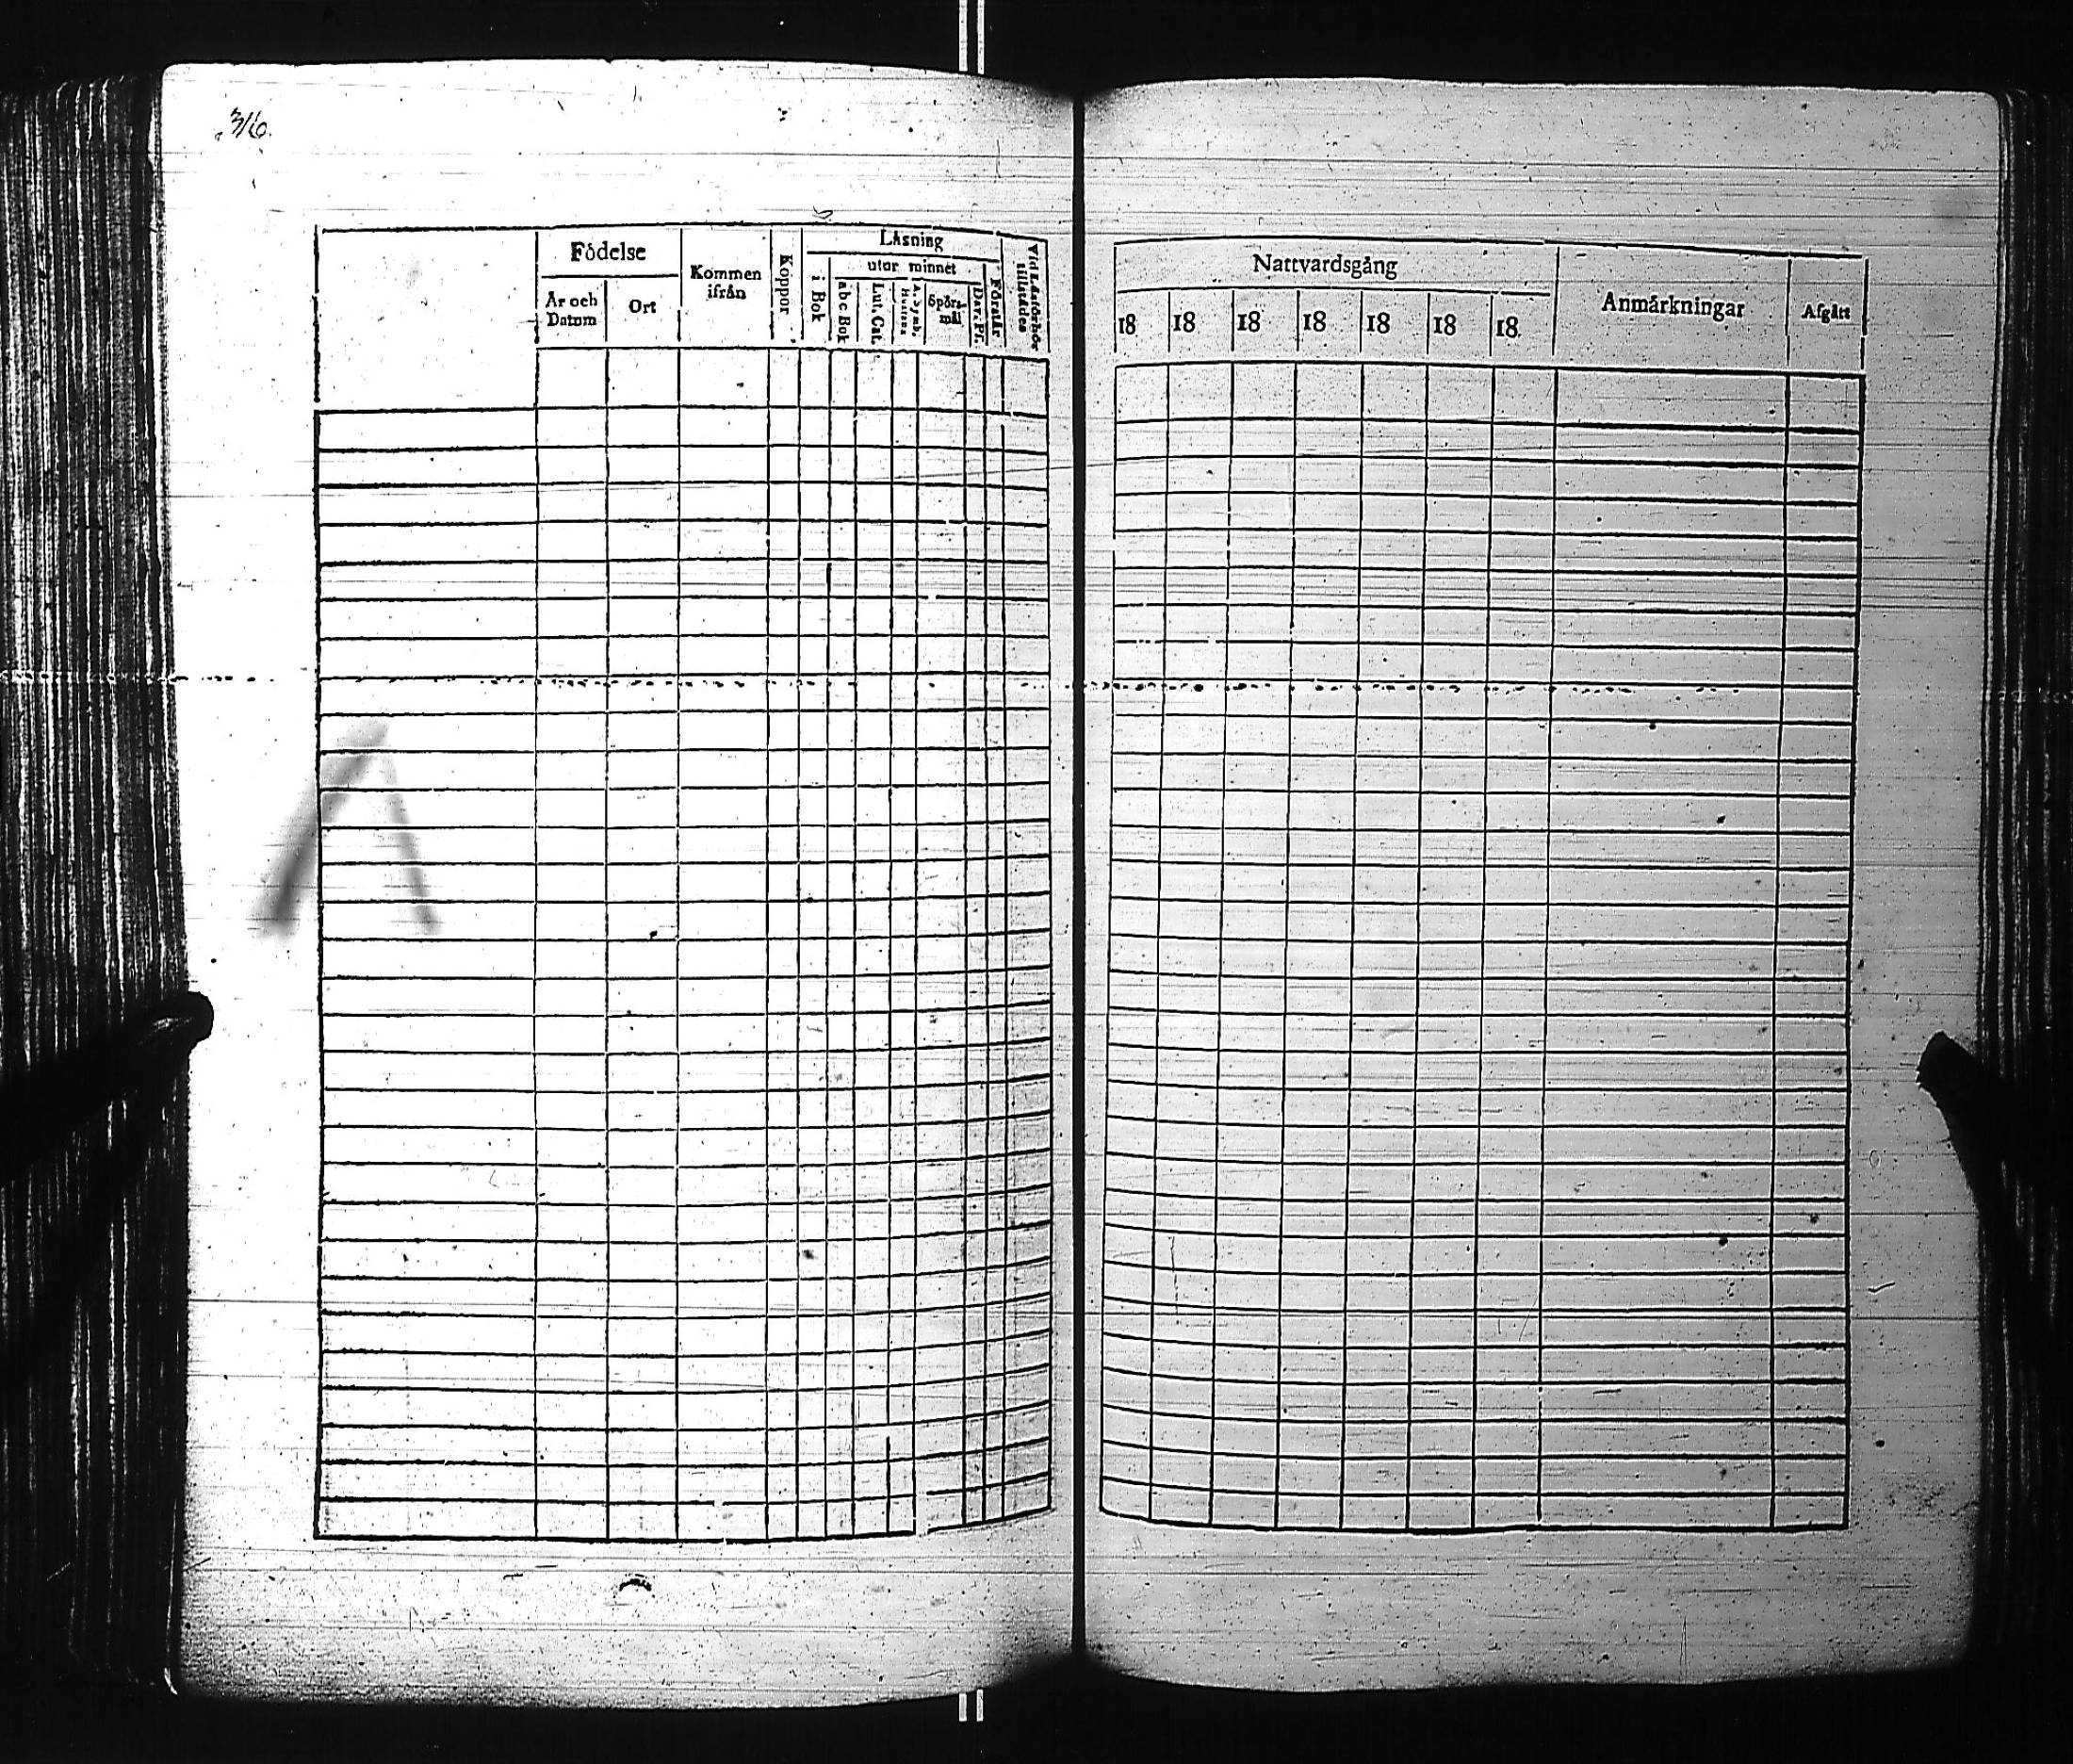 316.
Födelse
År och Datum
Ort
Kommen ifrån
Koppor
Läsning
i Bok
utur minnet
abc Bok
Lut. Cat.
A. Symb.
Spörs-mål
Dav. Ps.
Förstår
Vid Läsförhör tillstädes
Nattvardsgång
18 18 18 18 18 18 18
Anmärkningar
Afgått